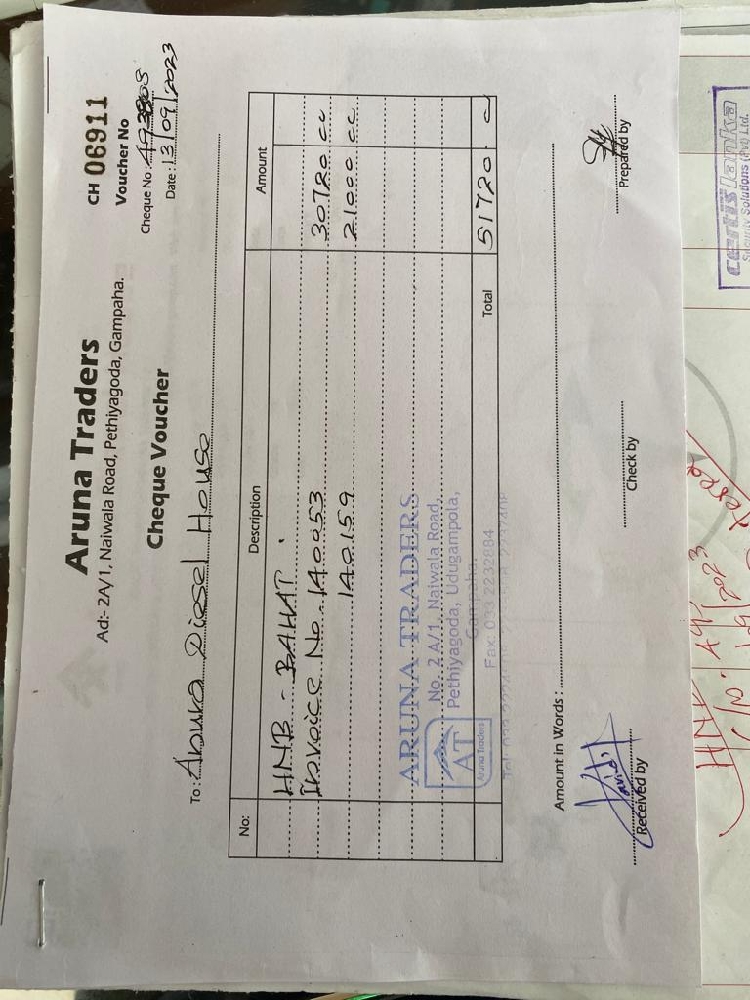 Aruna Traders
Ad:- 2A/1, Naiwala Road, Pethiyagoda, Gampaha.
CH 06911
Voucher No
Cheque Voucher
Cheque No :
Date : 13/09/2023
To : Anura Diesel House
No: Description Amount
HNB - BAHAT.
Invoice No - 140053 30720 cc
140159 21000 cc
ARUNA TRADERS
No. 2 A/1, Naiwala Road,
Pethiyagoda, Udugampola,
Gampaha.
Fax: 033 2232884
AT
Aruna Traders
Total 51720. c
Amount in Words :
Received by
Check by
Prepared by
certis lanka
Security Solutions (Pvt) Ltd.
HNB
2023